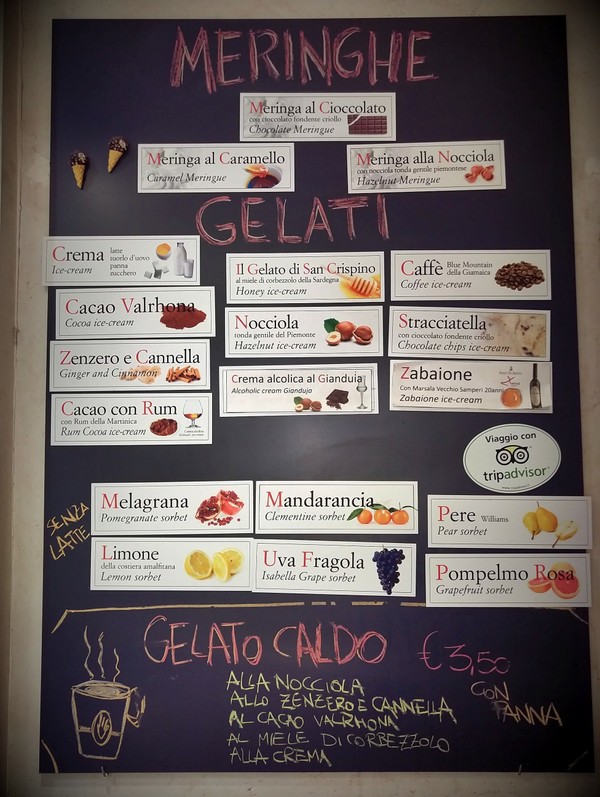 MERINGHE
Meringa al Cioccolato
con cioccolato fondente criollo
Chocolate Meringue
Meringa al Caramello
Caramel Meringue
Meringa alla Nocciola
con nocciola tonda gentile piemontese
Hazelnut Meringue
GELATI
Crema
latte
tuorlo d'uovo
panna
zucchero
Ice-cream
Il Gelato di San Crispino
al miele di corbezzolo della Sardegna
Honey ice-cream
Caffè Blue Mountain
della Giamaica
Coffee ice-cream
Cacao Valrhona
Cocoa ice-cream
Nocciola
tonda gentile del Piemonte
Hazelnut ice-cream
Stracciatella
con cioccolato fondente criollo
Chocolate chips ice-cream
Zenzero e Cannella
Ginger and Cinnamon
Crema alcolica al Gianduia
Alcoholic cream Gianduja
Zabaione
Con Marsala Vecchio Samperi 20anni
Zabaione ice-cream
Cacao con Rum
con Rum della Martinica
Rum Cocoa ice-cream
Viaggio con
tripadvisor
SENZA
LATTE
Melagrana
Pomegranate sorbet
Mandarancia
Clementine sorbet
Pere Williams
Pear sorbet
Limone
della costiera amalfitana
Lemon sorbet
Uva Fragola
Isabella Grape sorbet
Pompelmo Rosa
Grapefruit sorbet
GELATO CALDO € 3,50
CON
PANNA
ALLA NOCCIOLA
ALLO ZENZERO E CANNELLA
AL CACAO VALRHONA
AL MIELE DI CORBEZZOLO
ALLA CREMA